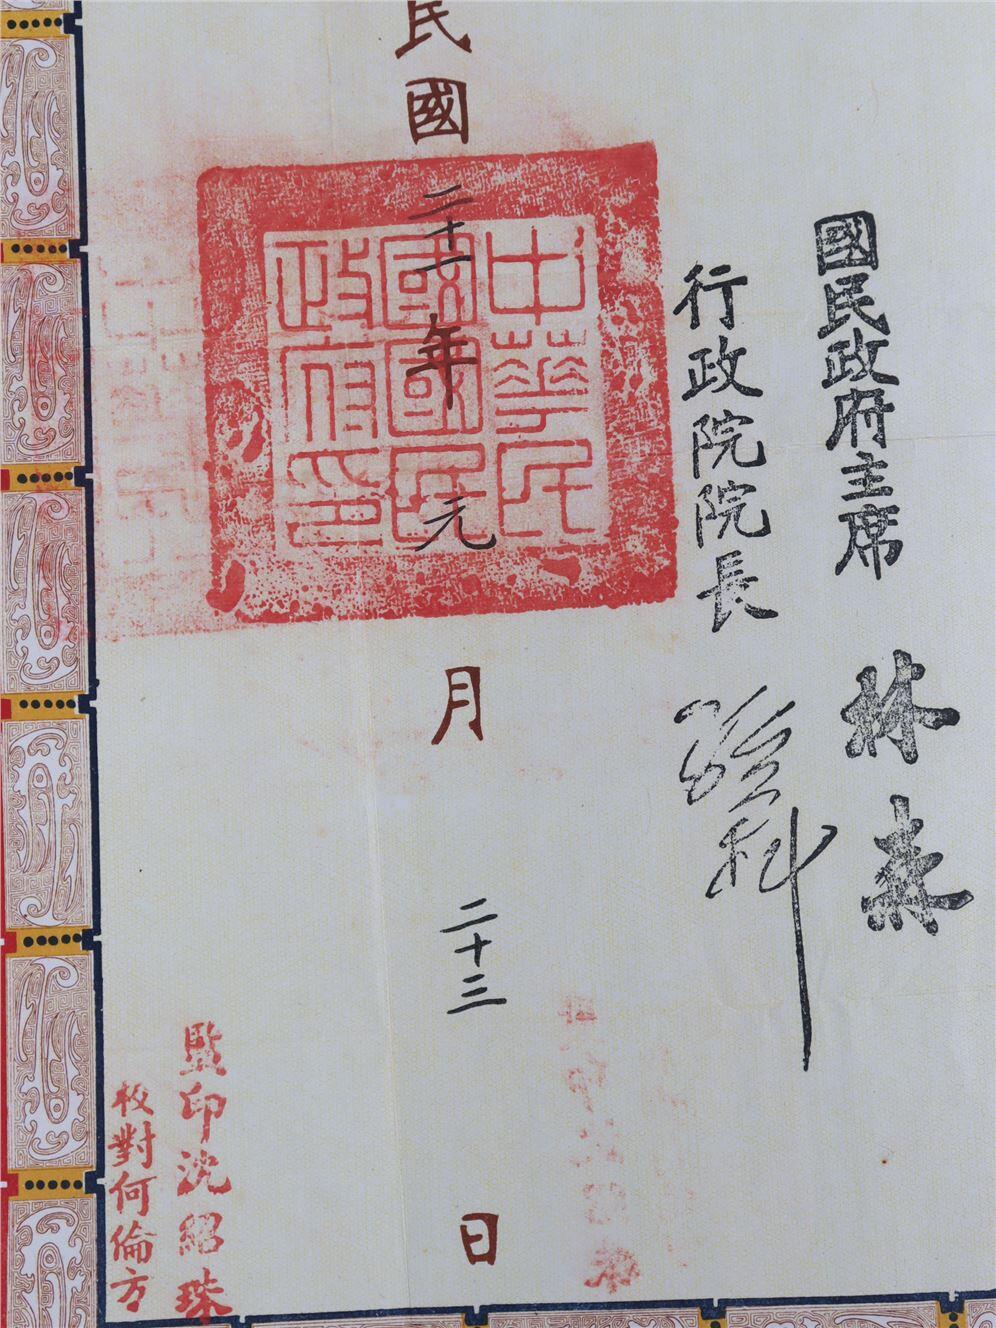 國民政府主席 林森
行政院院長 孫科
中華民
國國民
政府印
民國二十一年元月二十三日
監印沈紹珠
校對何倫方